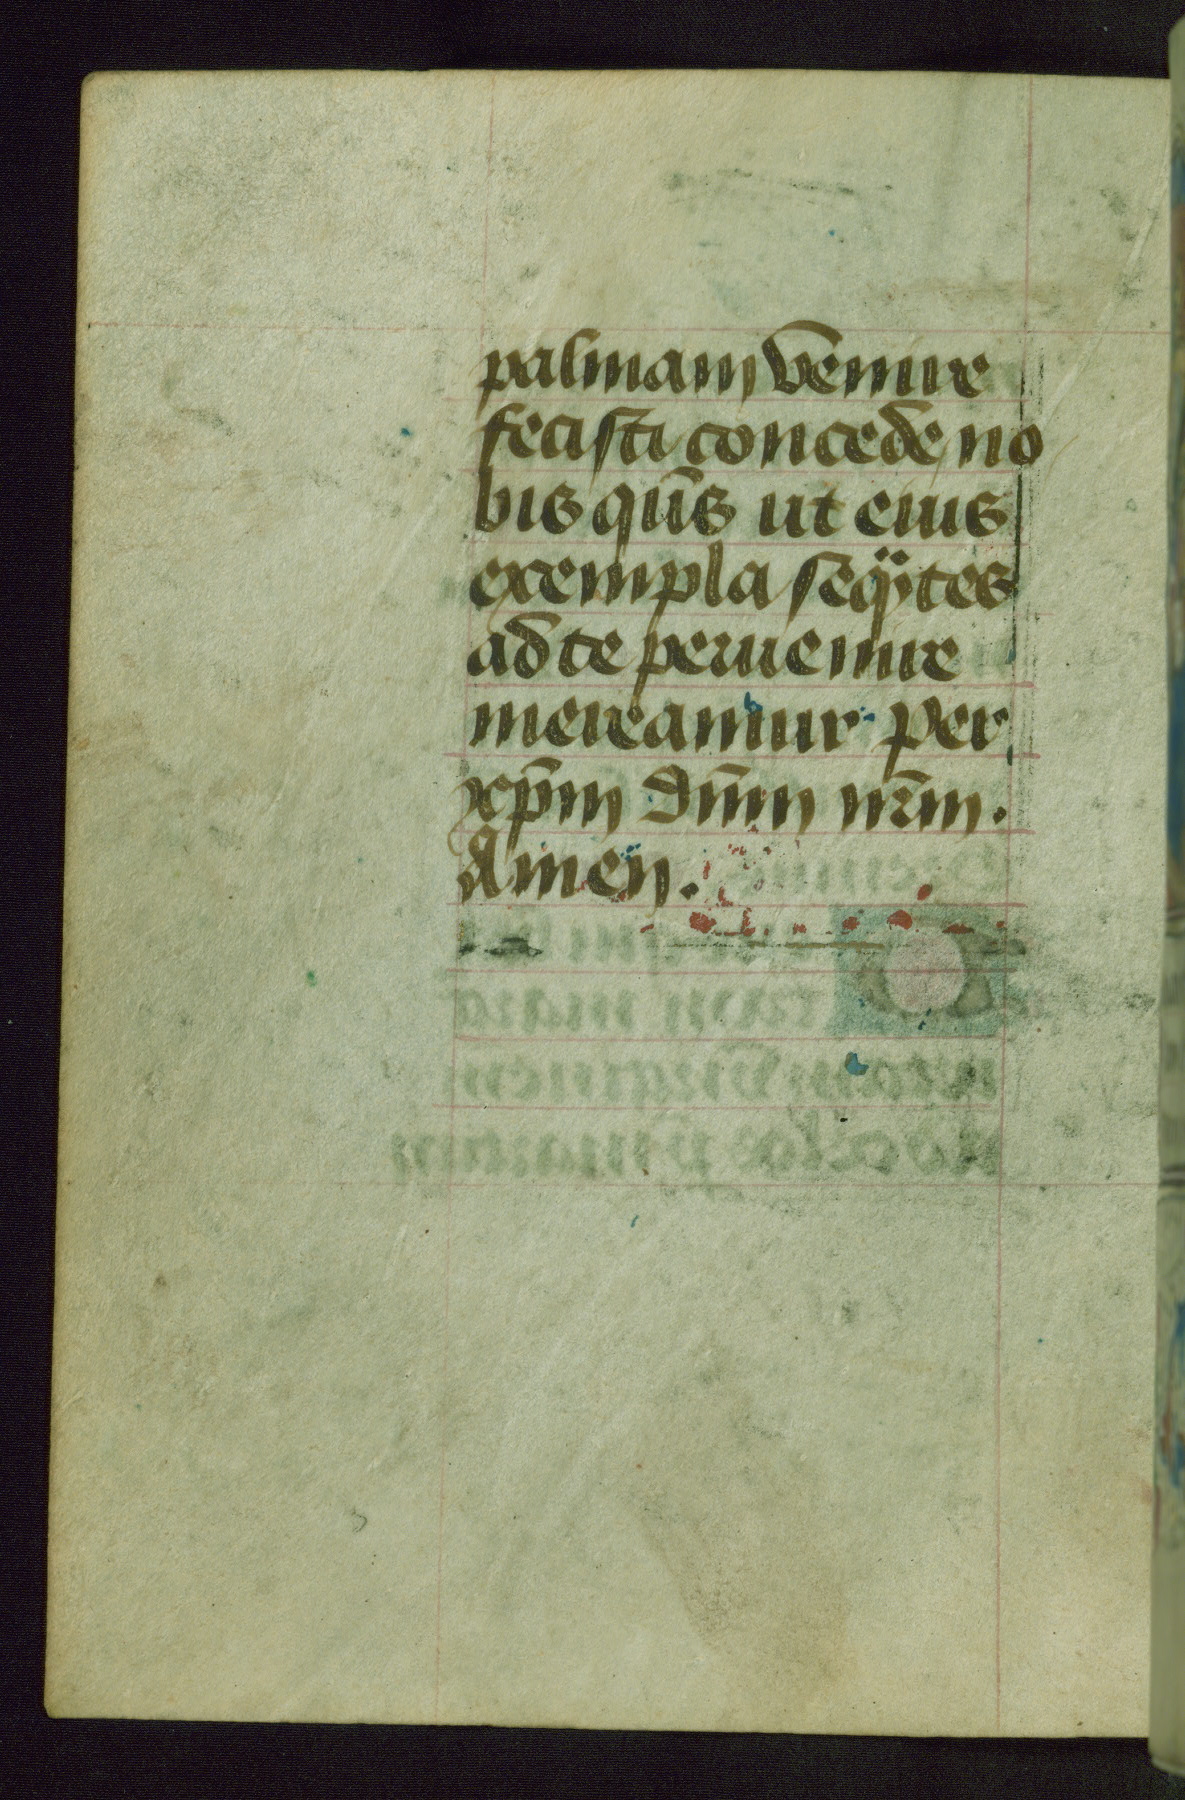 palmam venire
fecisti concede no
bis qūs ut eius
exempla seqūtes
ad te peruenire
mereamur per
xp̄m dn̄m nr̄m.
Amen.